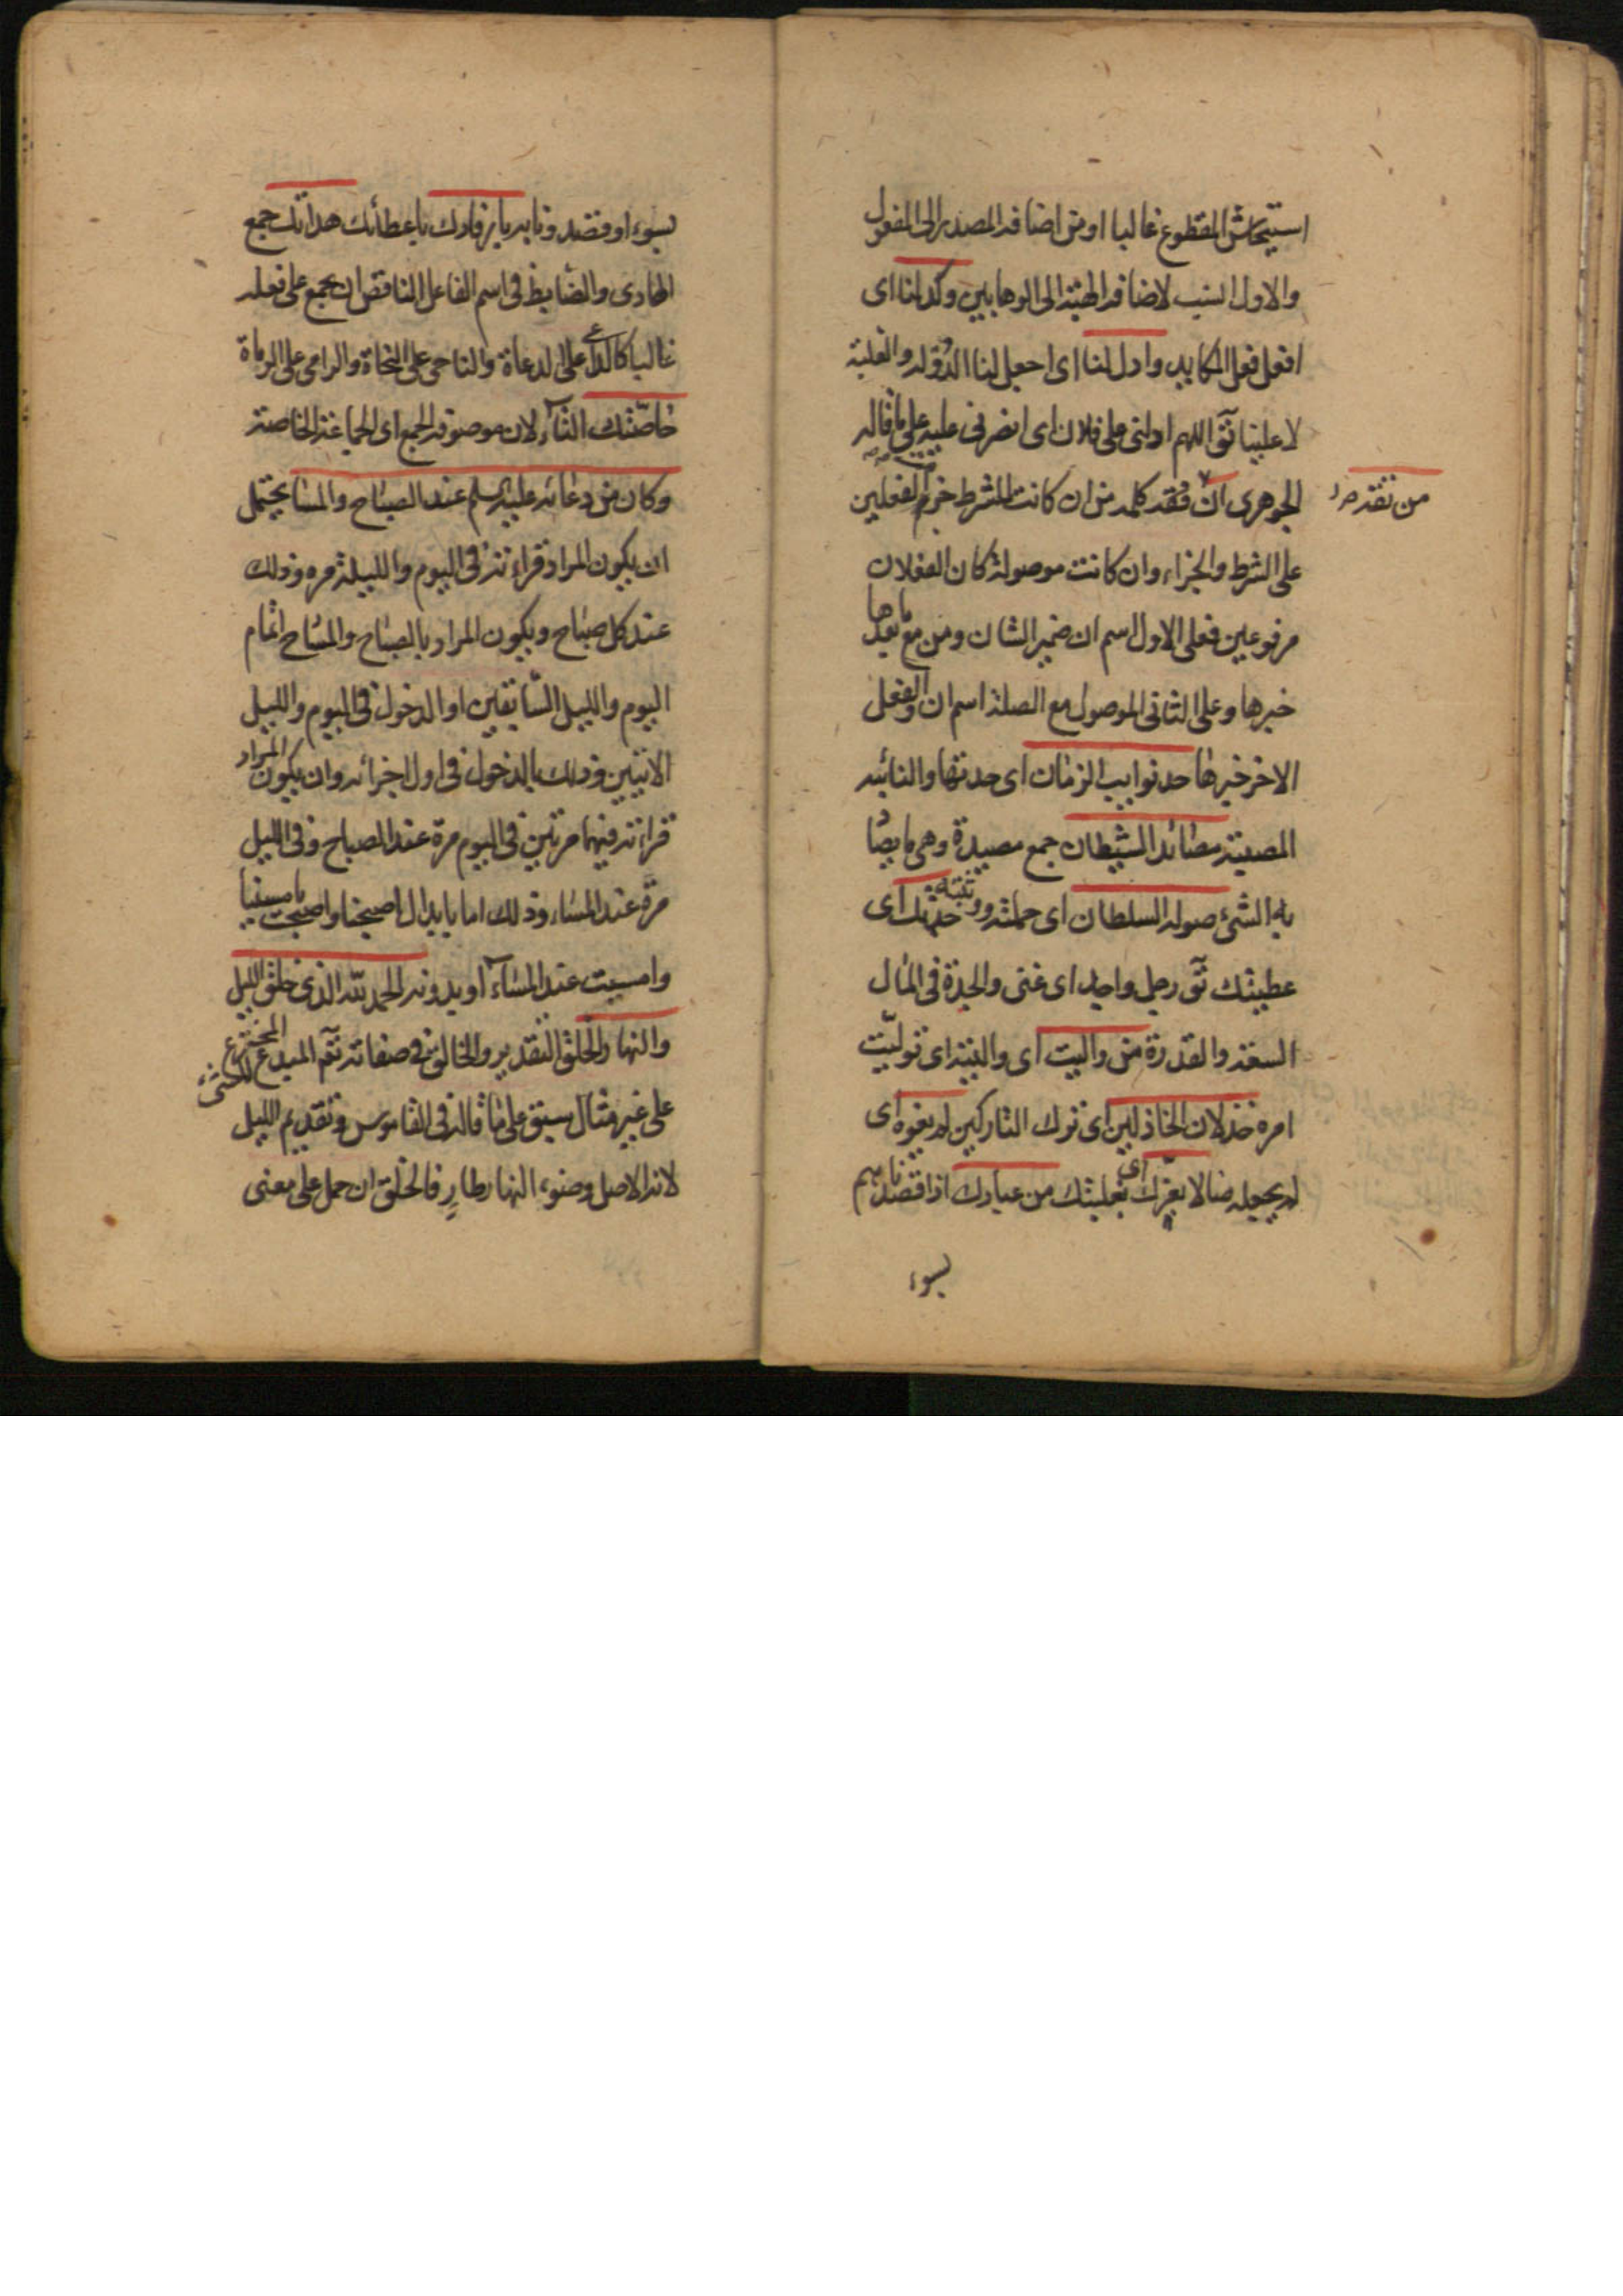 استيحاش المقطوع غالبا او من اضافه المصدر الى المفعول
والاول انسب لاضافه الهيئة الى الوهابين وكد لنا اى
افعل فعل المكايد وادل لنا اى اجعل لنا الدوله والغلبة
لا علينا تق اللهم ادلنى على فلان اى انصرنى عليه على ما قاله
الجوهرى ان فقد كلمه من ان كانت للشرط جزم الفعلين
من تقدمه
على الشرط والجزاء وان كانت موصولة كان الفعلان
مرفوعين فعلى الاول اسم ان ضمير الشان ومن مع ما بعدها
خبرها وعلى الثانى الموصول مع الصلة اسم ان والفعل
الاخر خبرها حد نوايب الزمان اى حدتها والنائبه
المصيبة مصائد الشيطان جمع مصيدة وهى ما يصاد
به الشئ صوله السلطان اى حملته و جدتك اى
عطيتك تق رجل واجد اى غنى والجدة فى المال
السعة والقدرة من واليت اى والبته اى توليت
امره خذلان الخاذلين اى ترك التاركين لم يغوه اى
لم يجعله ضالا بعزك اى بغلبتك من عبادك اذا قصدناهم
بسوء
بسوء او قصدونا به بارفادك باعطائك هداتك جمع
الهادى والضابط فى اسم الفاعل الناقص ان يجمع على فعله
غالبا كالداعى على الدعاة والناحى على النحاة والرامى على الرماة
خاصتك التاء لان موصوفه الجمع اى الجماعة الخاصة
وكان من دعائه عليه السلم عند الصباح والمسا يحتمل
ان يكون المراد قراءته فى اليوم والليلة مره وذلك
عند كل صباح ويكون المراد بالصباح والمساح اتمام
اليوم والليل السابقين او الدخول فى اليوم والليل
الاتيين وذلك بالدخول فى اول اجزائه وان يكون المراد
قراءته فيهما مرتين فى اليوم مرة عند الصباح وفى الليل
مرة عند المساء وذلك اما بابدال اصبحنا واصبحت بامسينا
وامسيت عند المساء او بدونه الحمد لله الذى خلق الليل
والنهار والخلق التقدير والخالق فى صفاته تعم المبدع المخترع للشئ
على غير مثال سبق على ما قاله فى القاموس وتقديم الليل
لانه الاصل وضوء النهار طارٍ فالخلق ان حمل على معنى